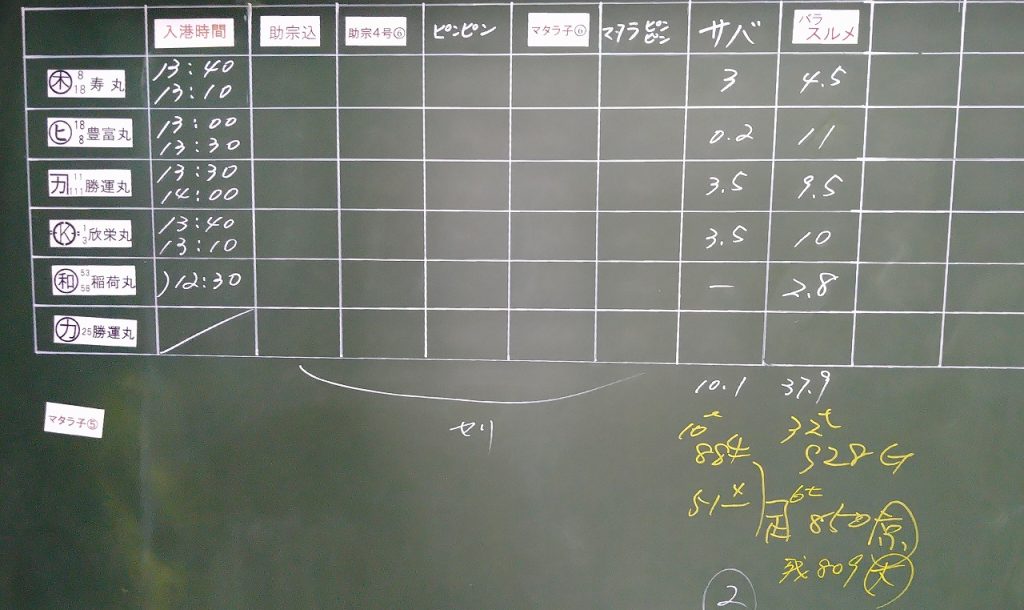 入港時間 助宗込 助宗4号⑥ ピンピン マタラ子⑥ マタラピンピン サバ バラスルメ
㊍ 8 18 寿丸 13:40 13:10 3 4.5
ヒ 18 8 豊富丸 13:00 13:30 0.2 11
カ 11 111 勝運丸 13:30 14:00 3.5 9.5
K 1 3 欣栄丸 13:40 13:10 3.5 10
和 53 58 稲荷丸 )12:30 ー 2.8
カ 25 勝運丸
10.1 37.9
マタラ子⑤
セリ
10t 32t
884 528
51
6t 850
残809
2